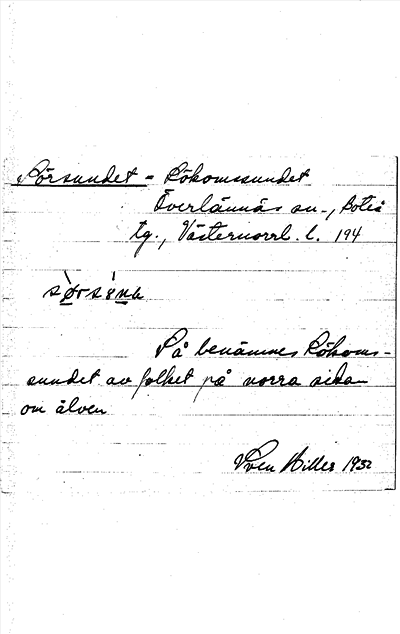 Sörsundet = Rökomssundet
Överlännäs sn., Boteå
tg., Västernorrl. l. 194
På benämnes Rökoms-
sundet av folket på norra sidan
om älven
Sven Hiller 1932